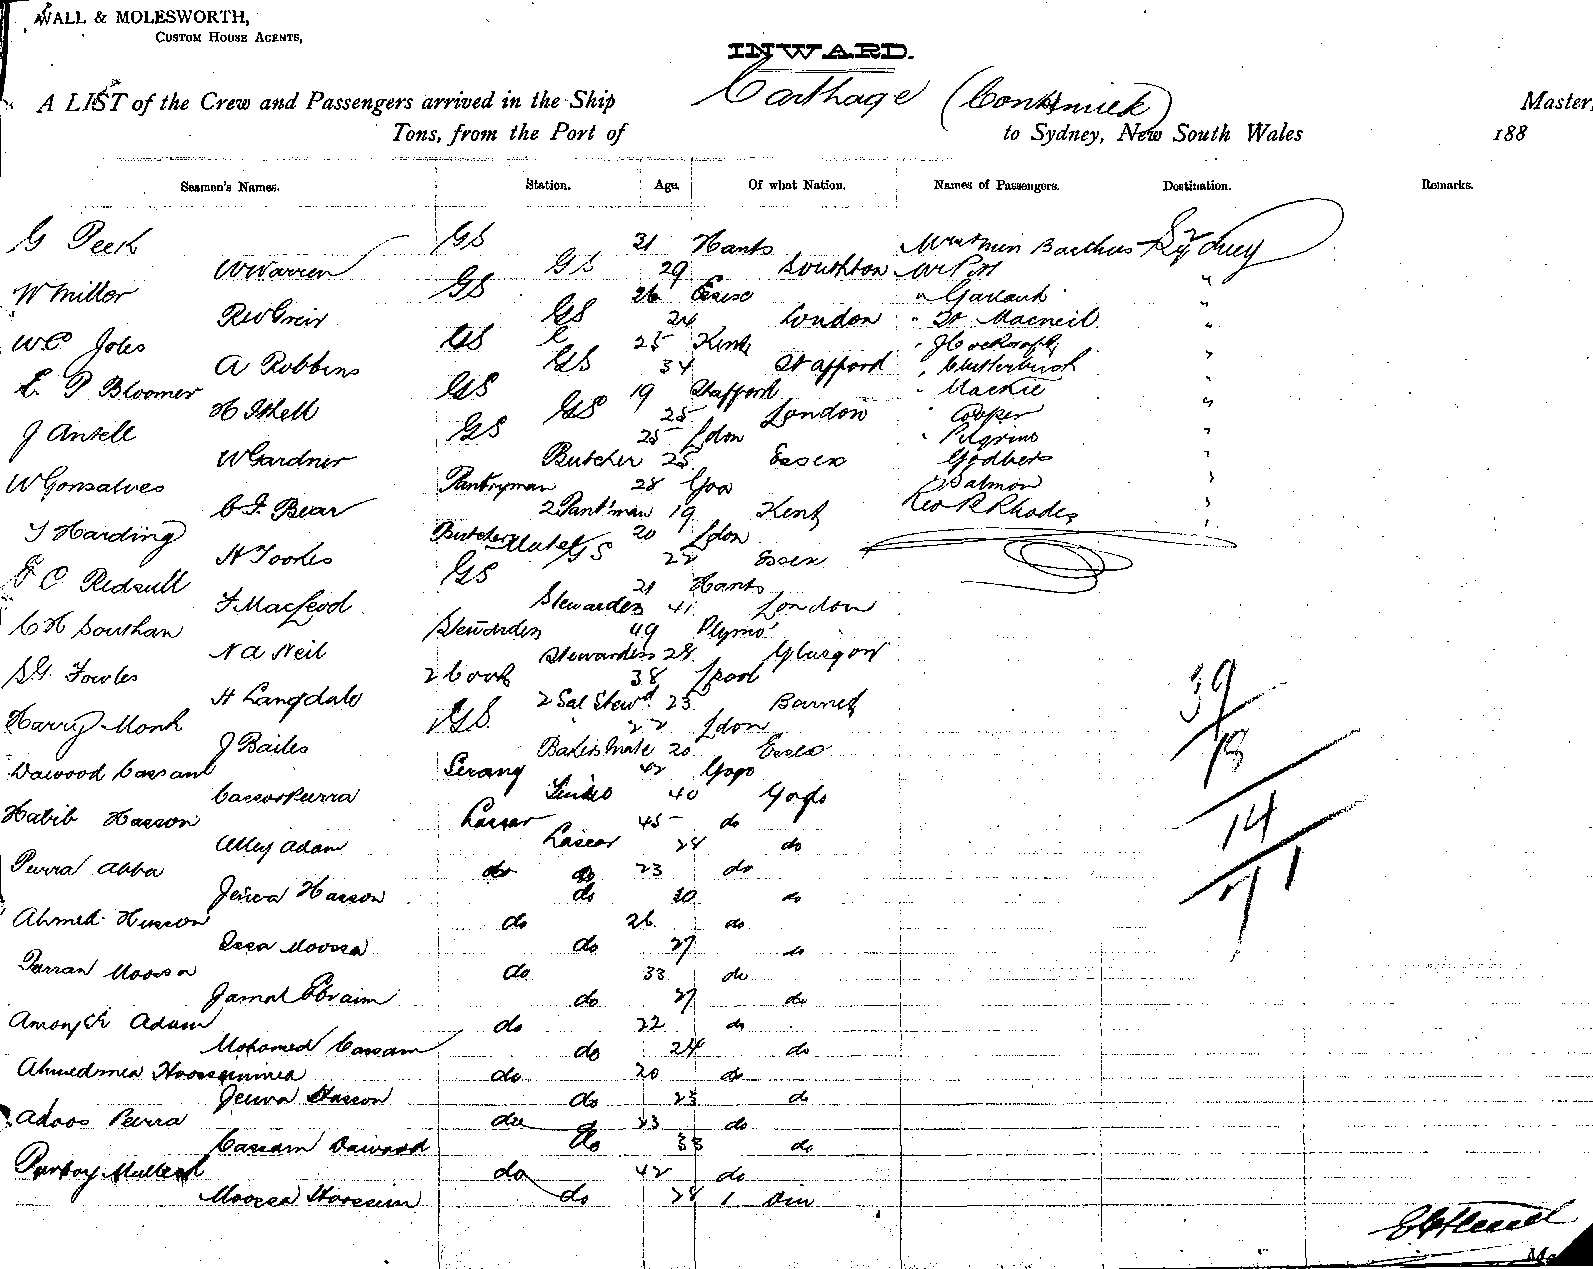 WALL & MOLESWORTH,
CUSTOM HOUSE AGENTS,
INWARD.
A LIST of the Crew and Passengers arrived in the Ship Carthage (Continued) Master,
Tons, from the Port of to Sydney, New South Wales 188
Seamen's Names. Station. Age. Of what Nation. Names of Passengers. Destination. Remarks.
G Peek GS 31 Hants Sydney
W Warren GS 29 Southton
W Miller GS 26 Essex " Garland "
GS 24 London " Dr Macneil "
GS 25 Kent "
A Robbins GS 34 Stafford "
L. P Bloomer GS 19 Stafford " Mackie
H Ithell GS 25 London " Cooper "
J Ansell GS 25 Ldon " Pilgrim "
W Gardner Butcher 25 Essex Godbers
W Gonsalves Pantryman 28 Goa Salmon "
C. F. Bear 2 Pant'man 19 Kent Geo R Rhodes "
T Harding Butchers Mate 20 Ldon
H Tookes GS 22 Essex
F C Redsull GS 21 Hants
F MacLeod Stewardess 41 London
C H Southan Stewardess 49 Plymo'
N A Neil Stewardess 28 Glasgow
S. G. Fowles 2 Cook 38 Lpool
H Langdale 2 Sal Stewd 23 Barnet
Harry Monk GS 22 Ldon
J Bailes Bakers Mate 20 Essex
Dawood Cassam Serang 42 Gogo
40 Gogo
Habib Hasson Lascar 45 do
Alley Adam Lascar 28 do
Perra Abba do do 23 do
Jeewa Hasson do 30 do
Ahmed Husson do 26 do
Essa Moossa do 27 do
Parran Moossa do 33 do
Jamal Ebraim do 27 do
Adam do 22 do
Mohomed Cassam do 24 do
Ahmedmea Hoosseinmea do 20 do
Jeewa Hasson do 23 do
Adoos Perra do 23 do
Cassam Dawood do 33 do
do 42 do
Moossa Hoossein do 28 Diu
39
18
14
71